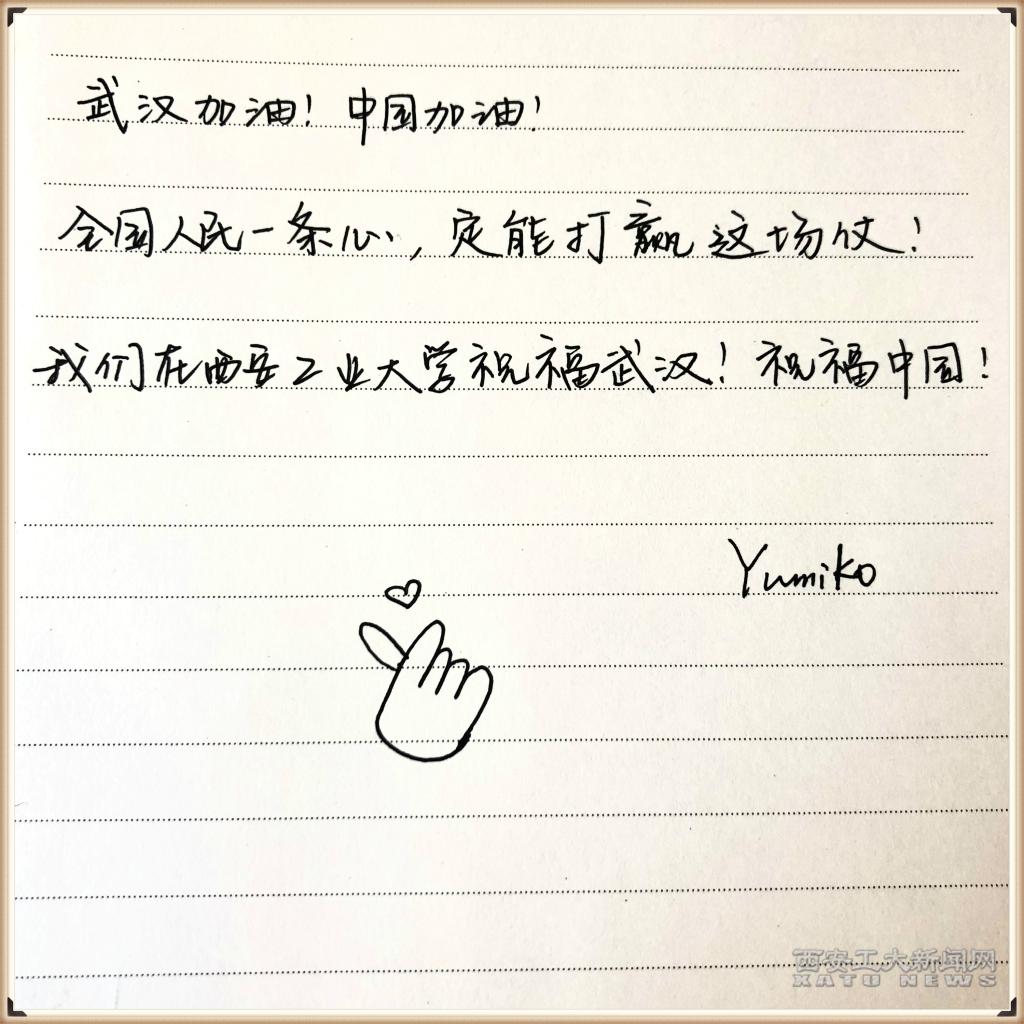 武汉加油！中国加油！
全国人民一条心，定能打赢这场仗！
我们在西安工业大学祝福武汉！祝福中国！
Yumiko
西安工大新闻网
XATU NEWS